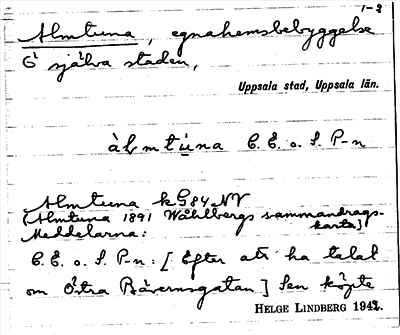 1-2
Almtuna, egnahemsbebyggelse
Ö själva staden,
Uppsala stad, Uppsala län.
àlmtúna C. E. o. S. P-n
Almtuna kG84NV
(Almtuna 1891 Wåhlbergs sammandrags-
karta)
Meddelarna:
C. E. o. S. P-n: [Efter att ha talat
om Östra Bävernsgatan] Sen köpte
HELGE LINDBERG 1942.